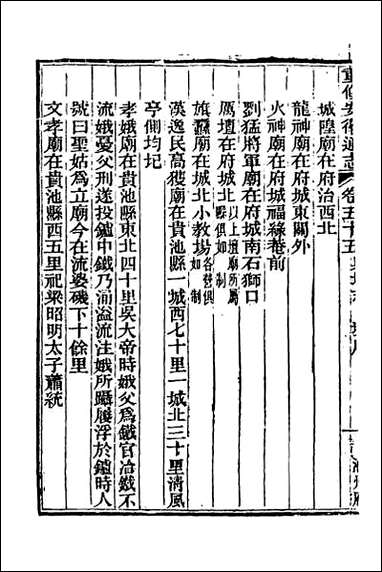 重修安徽通志 卷五十五
城隍廟在府治西北
龍神廟在府城東關外
火神廟在府城福緣菴前
劉猛將軍廟在府城南石獅口
厲壇在府城北以上壇廟所屬縣俱如制
旗纛廟在城北小教場各營俱如制
漢逸民高獲廟在貴池縣一城西七十里一城北三十里清風
亭側均圮
孝娥廟在貴池縣東北四十里吳大帝時娥父為鐵官冶鐵不
流娥憂父刑遂投鑪中鐵乃湧溢流注娥所躡履浮於鑪時人
號曰聖姑為立廟今在流婆磯下十餘里
文孝廟在貴池縣西五里祀梁昭明太子蕭統